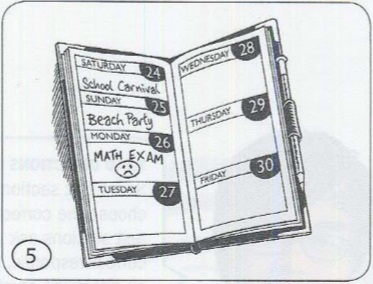 SATURDAY 24
School Carnival
SUNDAY 25
Beach Party
MONDAY 26
MATH EXAM
TUESDAY 27
WEDNESDAY 28
THURSDAY 29
FRIDAY 30
5